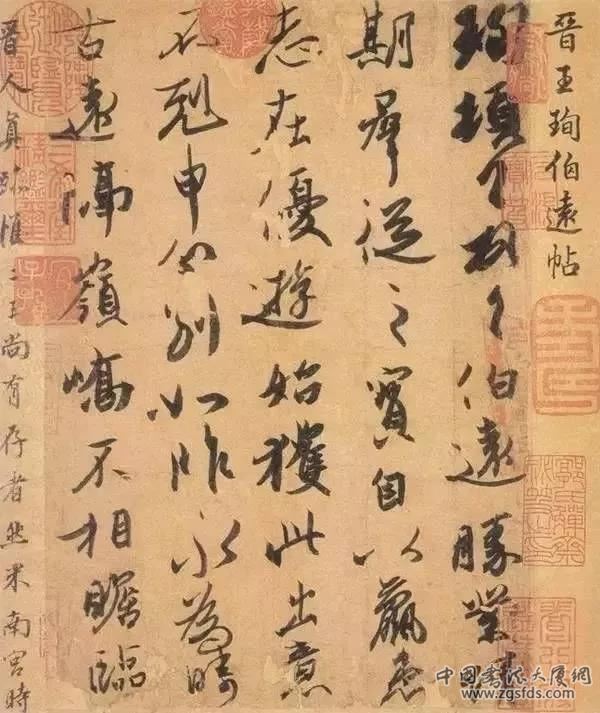 晋王珣伯遠帖
珣頓首頓首伯遠勝業情
期羣從之寶自以羸患
志在優遊始獲此出意
不剋申分別如昨永為疇
古遠隔嶺嶠不相瞻臨
晋人真跡惟二王尚有存者然米南宮時
中国书法大厦網
www.zgsfds.com